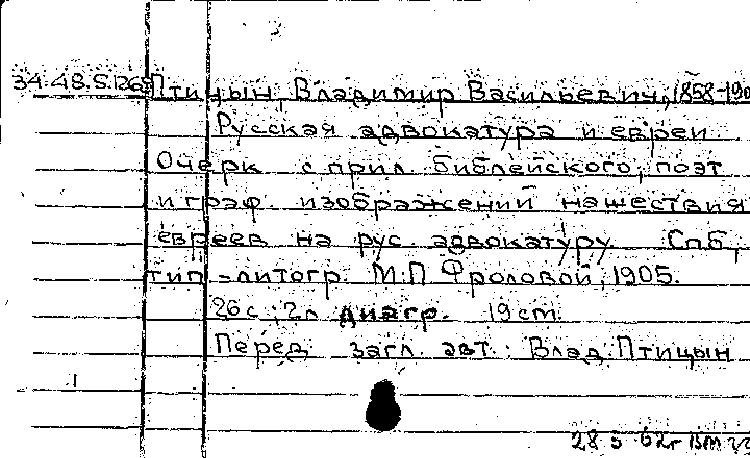 34.48.5.1269 Птицын, Владимир Васильевич, 1858-190
Русская адвокатура и евреи.
Очерк с прил. библейского, поэт
и граф. изображений нашествия
евреев на рус. адвокатуру. Спб,
тип.-литогр. М.П Фроловой, 1905.
26с; 2л диагр. 19cm.
Перед загл. авт.: Влад. Птицын
28 5 62г ВМ